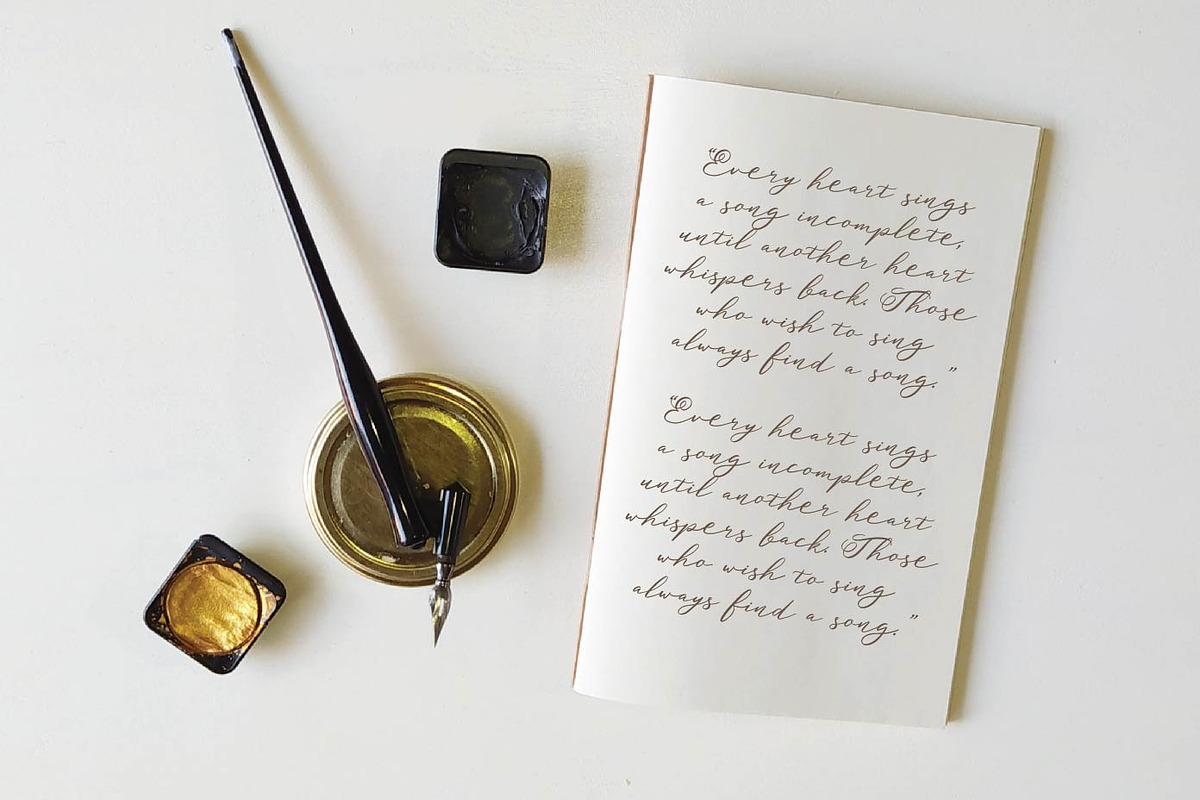 “Every heart sings
a song incomplete,
until another heart
whispers back. Those
who wish to sing
always find a song.”
“Every heart sings
a song incomplete,
until another heart
whispers back. Those
who wish to sing
always find a song.”